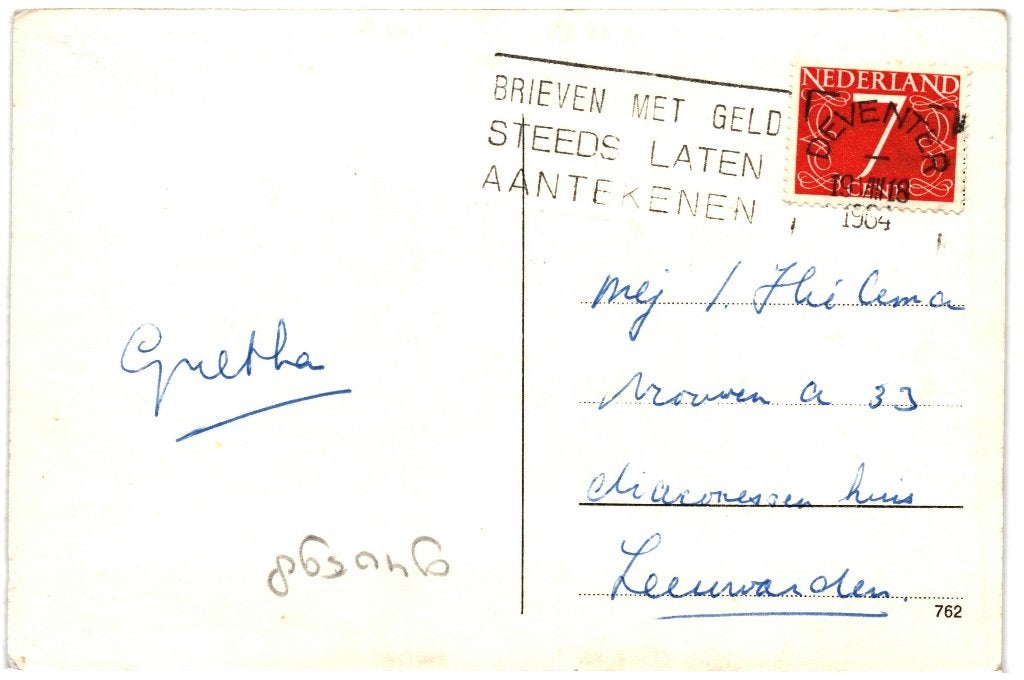 BRIEVEN MET GELD
STEEDS LATEN
AANTEKENEN
NEDERLAND
7
CENT
DEVENTER
19 VIII 18
1964
Mej I. Hielema
Vrouwen A 33
diaconessen huis
Leeuwarden.
Gretha
762